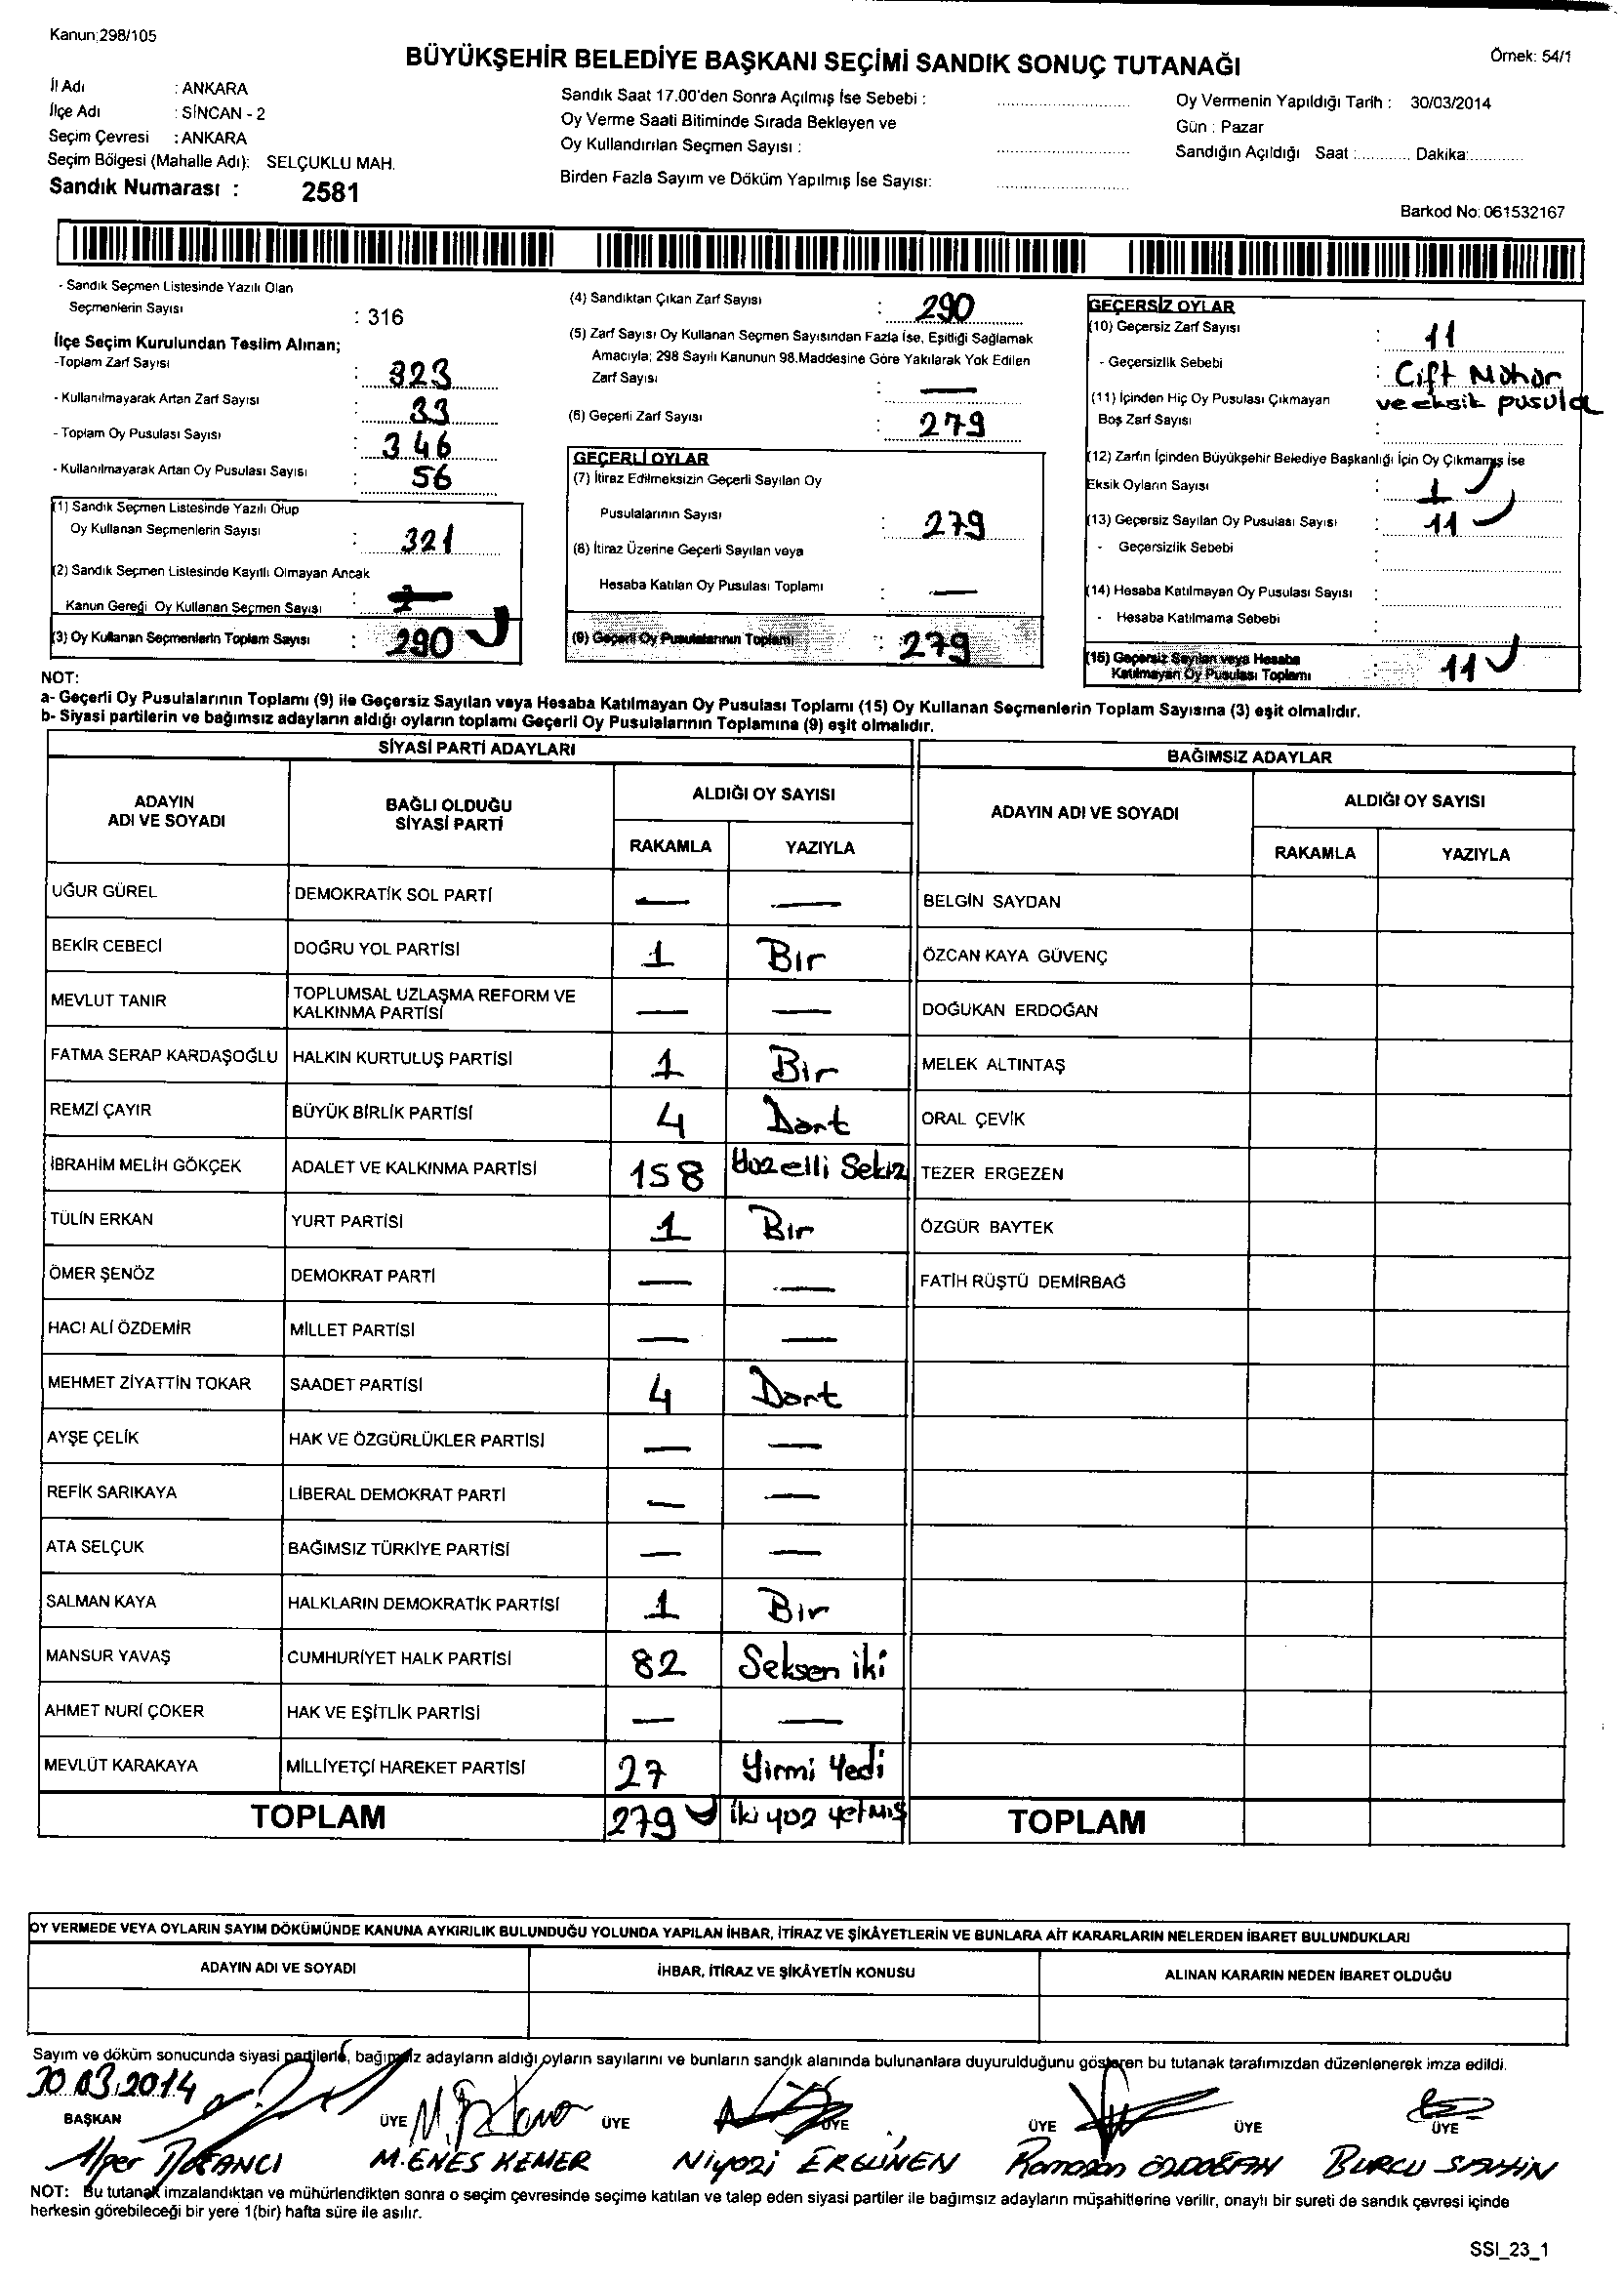 Kanun;298/105
BÜYÜKŞEHİR BELEDİYE BAŞKANI SEÇİMİ SANDIK SONUÇ TUTANAĞI
Örnek: 54/1
İl Adı : ANKARA
İlçe Adı : SİNCAN - 2
Seçim Çevresi : ANKARA
Seçim Bölgesi (Mahalle Adı): SELÇUKLU MAH.
Sandık Numarası : 2581
Sandık Saat 17.00'den Sonra Açılmış İse Sebebi :
Oy Verme Saati Bitiminde Sırada Bekleyen ve
Oy Kullandırılan Seçmen Sayısı :
Birden Fazla Sayım ve Döküm Yapılmış İse Sayısı:
Oy Vermenin Yapıldığı Tarih : 30/03/2014
Gün : Pazar
Sandığın Açıldığı Saat :............ Dakika:............
Barkod No: 061532167
- Sandık Seçmen Listesinde Yazılı Olan
Seçmenlerin Sayısı : 316
İlçe Seçim Kurulundan Teslim Alınan;
-Toplam Zarf Sayısı : 323
- Kullanılmayarak Artan Zarf Sayısı : 33
- Toplam Oy Pusulası Sayısı : 346
- Kullanılmayarak Artan Oy Pusulası Sayısı : 56
(1) Sandık Seçmen Listesinde Yazılı Olup
Oy Kullanan Seçmenlerin Sayısı : 321
(2) Sandık Seçmen Listesinde Kayıtlı Olmayan Ancak
Kanun Gereği Oy Kullanan Seçmen Sayısı :
(3) Oy Kullanan Seçmenlerin Toplam Sayısı : 290
(4) Sandıktan Çıkan Zarf Sayısı : 290
(5) Zarf Sayısı Oy Kullanan Seçmen Sayısından Fazla İse, Eşitliği Sağlamak
Amacıyla; 298 Sayılı Kanunun 98.Maddesine Göre Yakılarak Yok Edilen
Zarf Sayısı : —
(6) Geçerli Zarf Sayısı : 279
GEÇERLİ OYLAR
(7) İtiraz Edilmeksizin Geçerli Sayılan Oy
Pusulalarının Sayısı : 279
(8) İtiraz Üzerine Geçerli Sayılan veya
Hesaba Katılan Oy Pusulası Toplamı : —
(9) Geçerli Oy Pusulalarının Toplamı : 279
GEÇERSİZ OYLAR
(10) Geçersiz Zarf Sayısı : 11
- Geçersizlik Sebebi : Çift Mühür
ve eksik pusula
(11) İçinden Hiç Oy Pusulası Çıkmayan
Boş Zarf Sayısı :
(12) Zarfın İçinden Büyükşehir Belediye Başkanlığı İçin Oy Çıkmamış İse
Eksik Oyların Sayısı : 1
(13) Geçersiz Sayılan Oy Pusulası Sayısı : 11
- Geçersizlik Sebebi :
(14) Hesaba Katılmayan Oy Pusulası Sayısı :
- Hesaba Katılmama Sebebi :
(15) Geçersiz Sayılan veya Hesaba
Katılmayan Oy Pusulası Toplamı : 11
NOT:
a- Geçerli Oy Pusulalarının Toplamı (9) ile Geçersiz Sayılan veya Hesaba Katılmayan Oy Pusulası Toplamı (15) Oy Kullanan Seçmenlerin Toplam Sayısına (3) eşit olmalıdır.
b- Siyasi partilerin ve bağımsız adayların aldığı oyların toplamı Geçerli Oy Pusulalarının Toplamına (9) eşit olmalıdır.
SİYASİ PARTİ ADAYLARI
ADAYIN ADI VE SOYADI
BAĞLI OLDUĞU SİYASİ PARTİ
ALDIĞI OY SAYISI
RAKAMLA YAZIYLA
UĞUR GÜREL DEMOKRATİK SOL PARTİ — —
BEKİR CEBECİ DOĞRU YOL PARTİSİ 1 Bir
MEVLUT TANIR TOPLUMSAL UZLAŞMA REFORM VE KALKINMA PARTİSİ — —
FATMA SERAP KARDAŞOĞLU HALKIN KURTULUŞ PARTİSİ 1 Bir
REMZİ ÇAYIR BÜYÜK BİRLİK PARTİSİ 4 Dört
İBRAHİM MELİH GÖKÇEK ADALET VE KALKINMA PARTİSİ 158 Yüzelli Sekiz
TÜLİN ERKAN YURT PARTİSİ 1 Bir
ÖMER ŞENÖZ DEMOKRAT PARTİ — —
HACI ALİ ÖZDEMİR MİLLET PARTİSİ — —
MEHMET ZİYATTİN TOKAR SAADET PARTİSİ 4 Dört
AYŞE ÇELİK HAK VE ÖZGÜRLÜKLER PARTİSİ — —
REFİK SARIKAYA LİBERAL DEMOKRAT PARTİ — —
ATA SELÇUK BAĞIMSIZ TÜRKİYE PARTİSİ — —
SALMAN KAYA HALKLARIN DEMOKRATİK PARTİSİ 1 Bir
MANSUR YAVAŞ CUMHURİYET HALK PARTİSİ 82 Seksen iki
AHMET NURİ ÇOKER HAK VE EŞİTLİK PARTİSİ — —
MEVLÜT KARAKAYA MİLLİYETÇİ HAREKET PARTİSİ 27 Yirmi Yedi
TOPLAM 279 iki yüz yetmiş
BAĞIMSIZ ADAYLAR
ADAYIN ADI VE SOYADI
ALDIĞI OY SAYISI
RAKAMLA YAZIYLA
BELGİN SAYDAN
ÖZCAN KAYA GÜVENÇ
DOĞUKAN ERDOĞAN
MELEK ALTINTAŞ
ORAL ÇEVİK
TEZER ERGEZEN
ÖZGÜR BAYTEK
FATİH RÜŞTÜ DEMİRBAĞ
TOPLAM
OY VERMEDE VEYA OYLARIN SAYIM DÖKÜMÜNDE KANUNA AYKIRILIK BULUNDUĞU YOLUNDA YAPILAN İHBAR, İTİRAZ VE ŞİKÂYETLERİN VE BUNLARA AİT KARARLARIN NELERDEN İBARET BULUNDUKLARI
ADAYIN ADI VE SOYADI İHBAR, İTİRAZ VE ŞİKÂYETİN KONUSU ALINAN KARARIN NEDEN İBARET OLDUĞU
Sayım ve döküm sonucunda siyasi partilerle, bağımsız adayların aldığı oyların sayılarını ve bunların sandık alanında bulunanlara duyurulduğunu gösteren bu tutanak tarafımızdan düzenlenerek imza edildi.
30.03.2014
BAŞKAN ÜYE ÜYE ÜYE ÜYE ÜYE ÜYE
Alper M.ENES KEMER Niyazi ERGÜNEN Ramazan ÖZDOĞAN BURCU ŞAHİN
NOT: Bu tutanak imzalandıktan ve mühürlendikten sonra o seçim çevresinde seçime katılan ve talep eden siyasi partiler ile bağımsız adayların müşahitlerine verilir, onaylı bir sureti de sandık çevresi içinde
herkesin görebileceği bir yere 1(bir) hafta süre ile asılır.
SSI_23_1